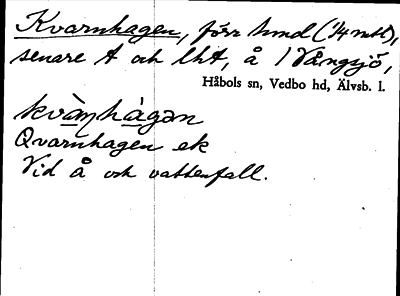 Kvarnhagen, förr hmd (1/4 mtl),
senare t och lht, å 1 Vångsjö,
Håbols sn, Vedbo hd, Älvsb. l.
kvàṇhágən
Qvarnhagen ek
Vid å och vattenfall.